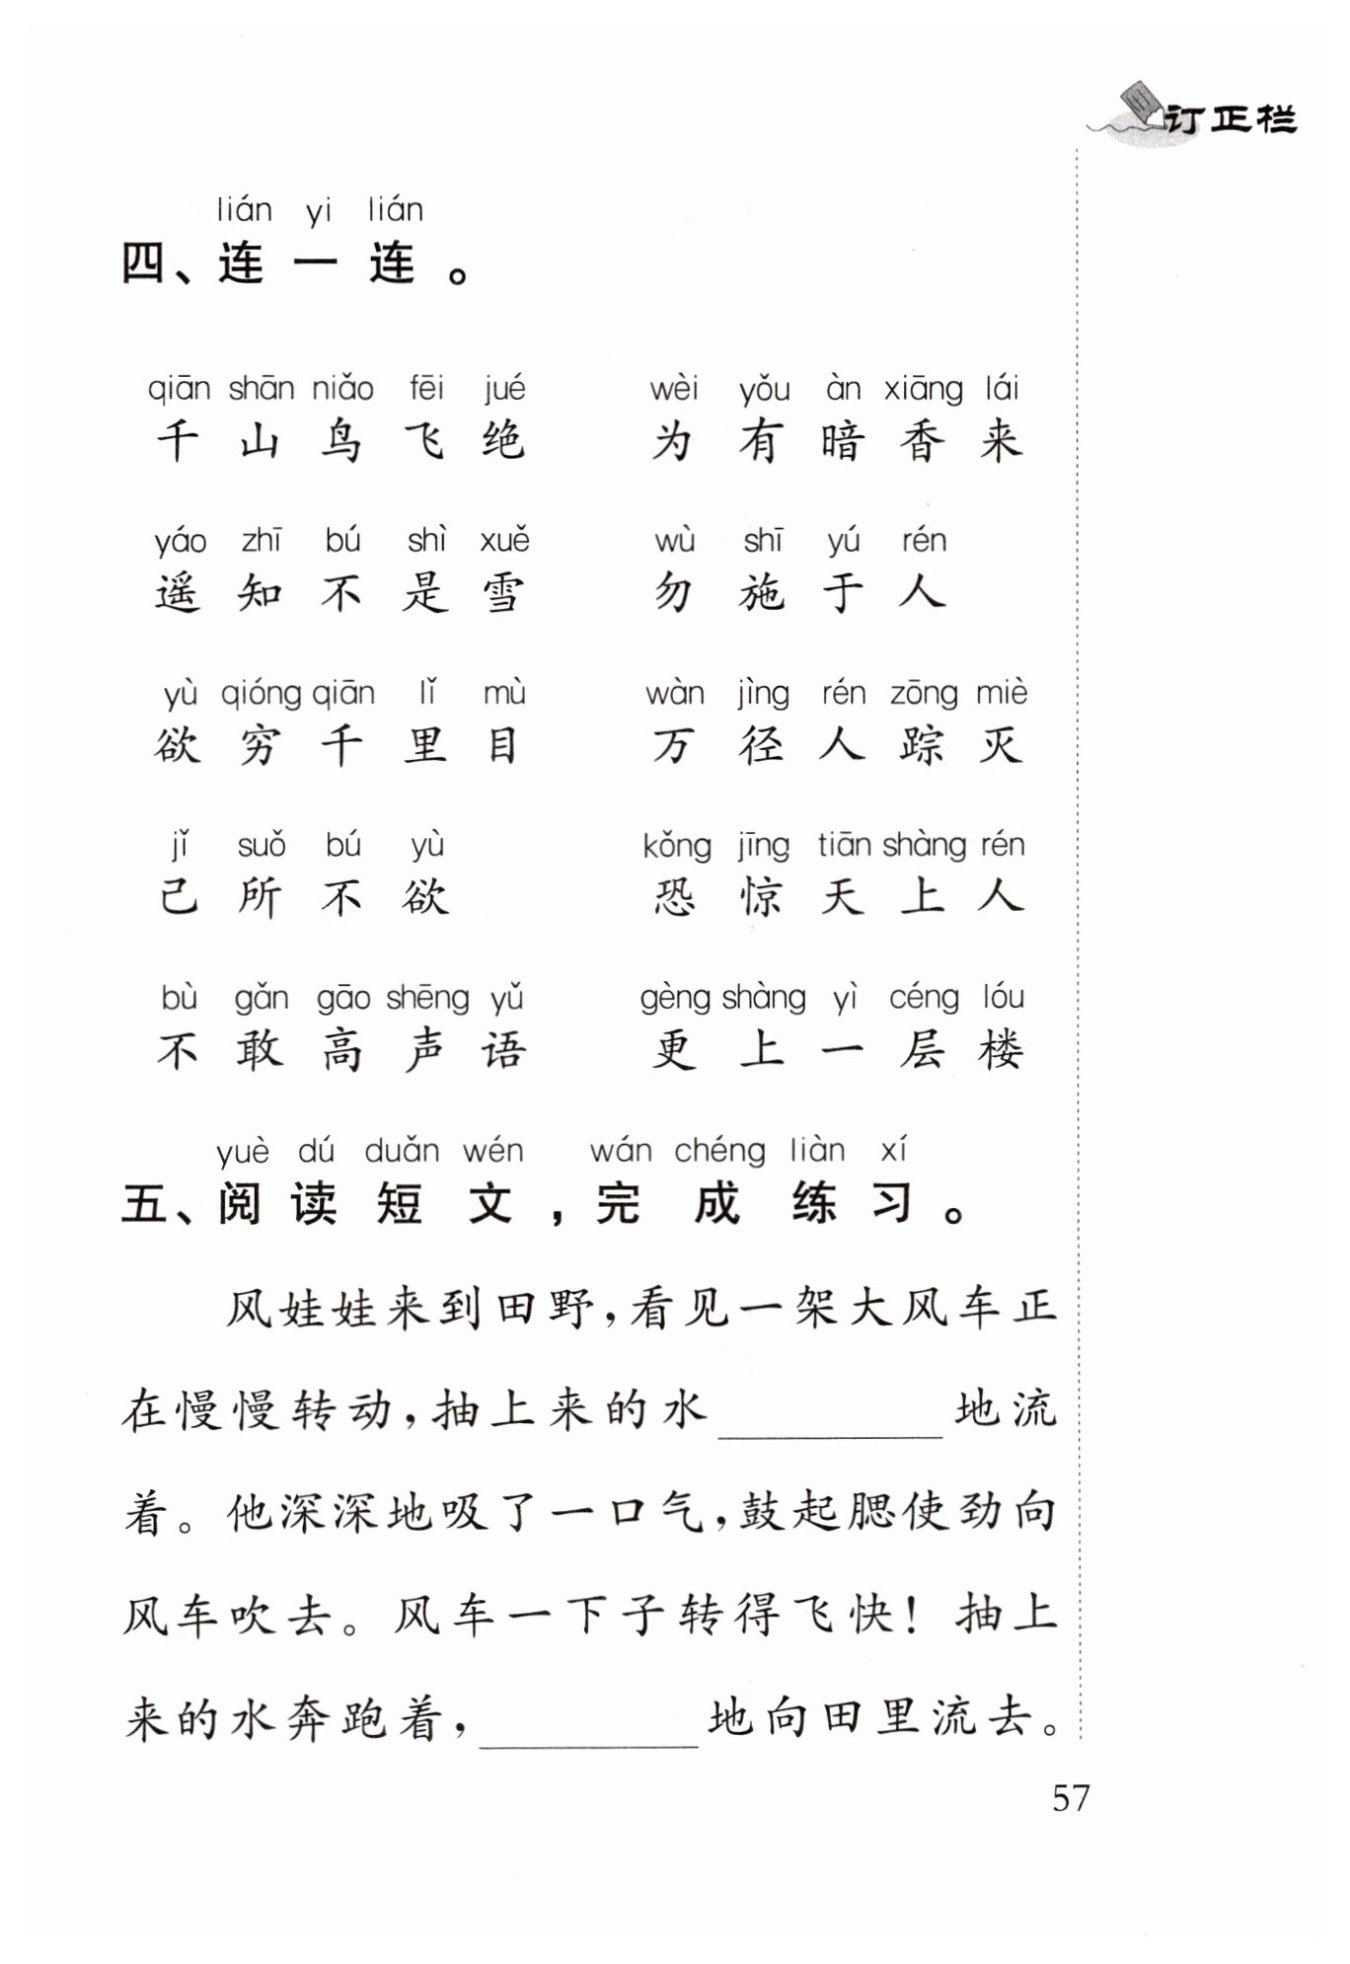 订正栏
lián yi lián
四、连一连。
qiān shān niǎo fēi jué wèi yǒu àn xiāng lái
千山鸟飞绝 为有暗香来
yáo zhī bú shì xuě wù shī yú rén
遥知不是雪 勿施于人
yù qióng qiān lǐ mù wàn jìng rén zōng miè
欲穷千里目 万径人踪灭
jǐ suǒ bú yù kǒng jīng tiān shàng rén
己所不欲 恐惊天上人
bù gǎn gāo shēng yǔ gèng shàng yì céng lóu
不敢高声语 更上一层楼
yuè dú duǎn wén wán chéng liàn xí
五、阅读短文，完成练习。
风娃娃来到田野，看见一架大风车正
在慢慢转动，抽上来的水________地流
着。他深深地吸了一口气，鼓起腮使劲向
风车吹去。风车一下子转得飞快！抽上
来的水奔跑着，________地向田里流去。
57